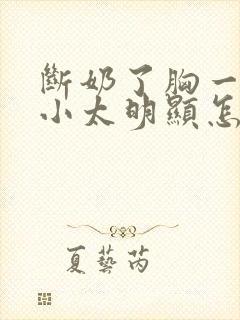 斷奶了胸一
小太明顯怎
夏藝芮